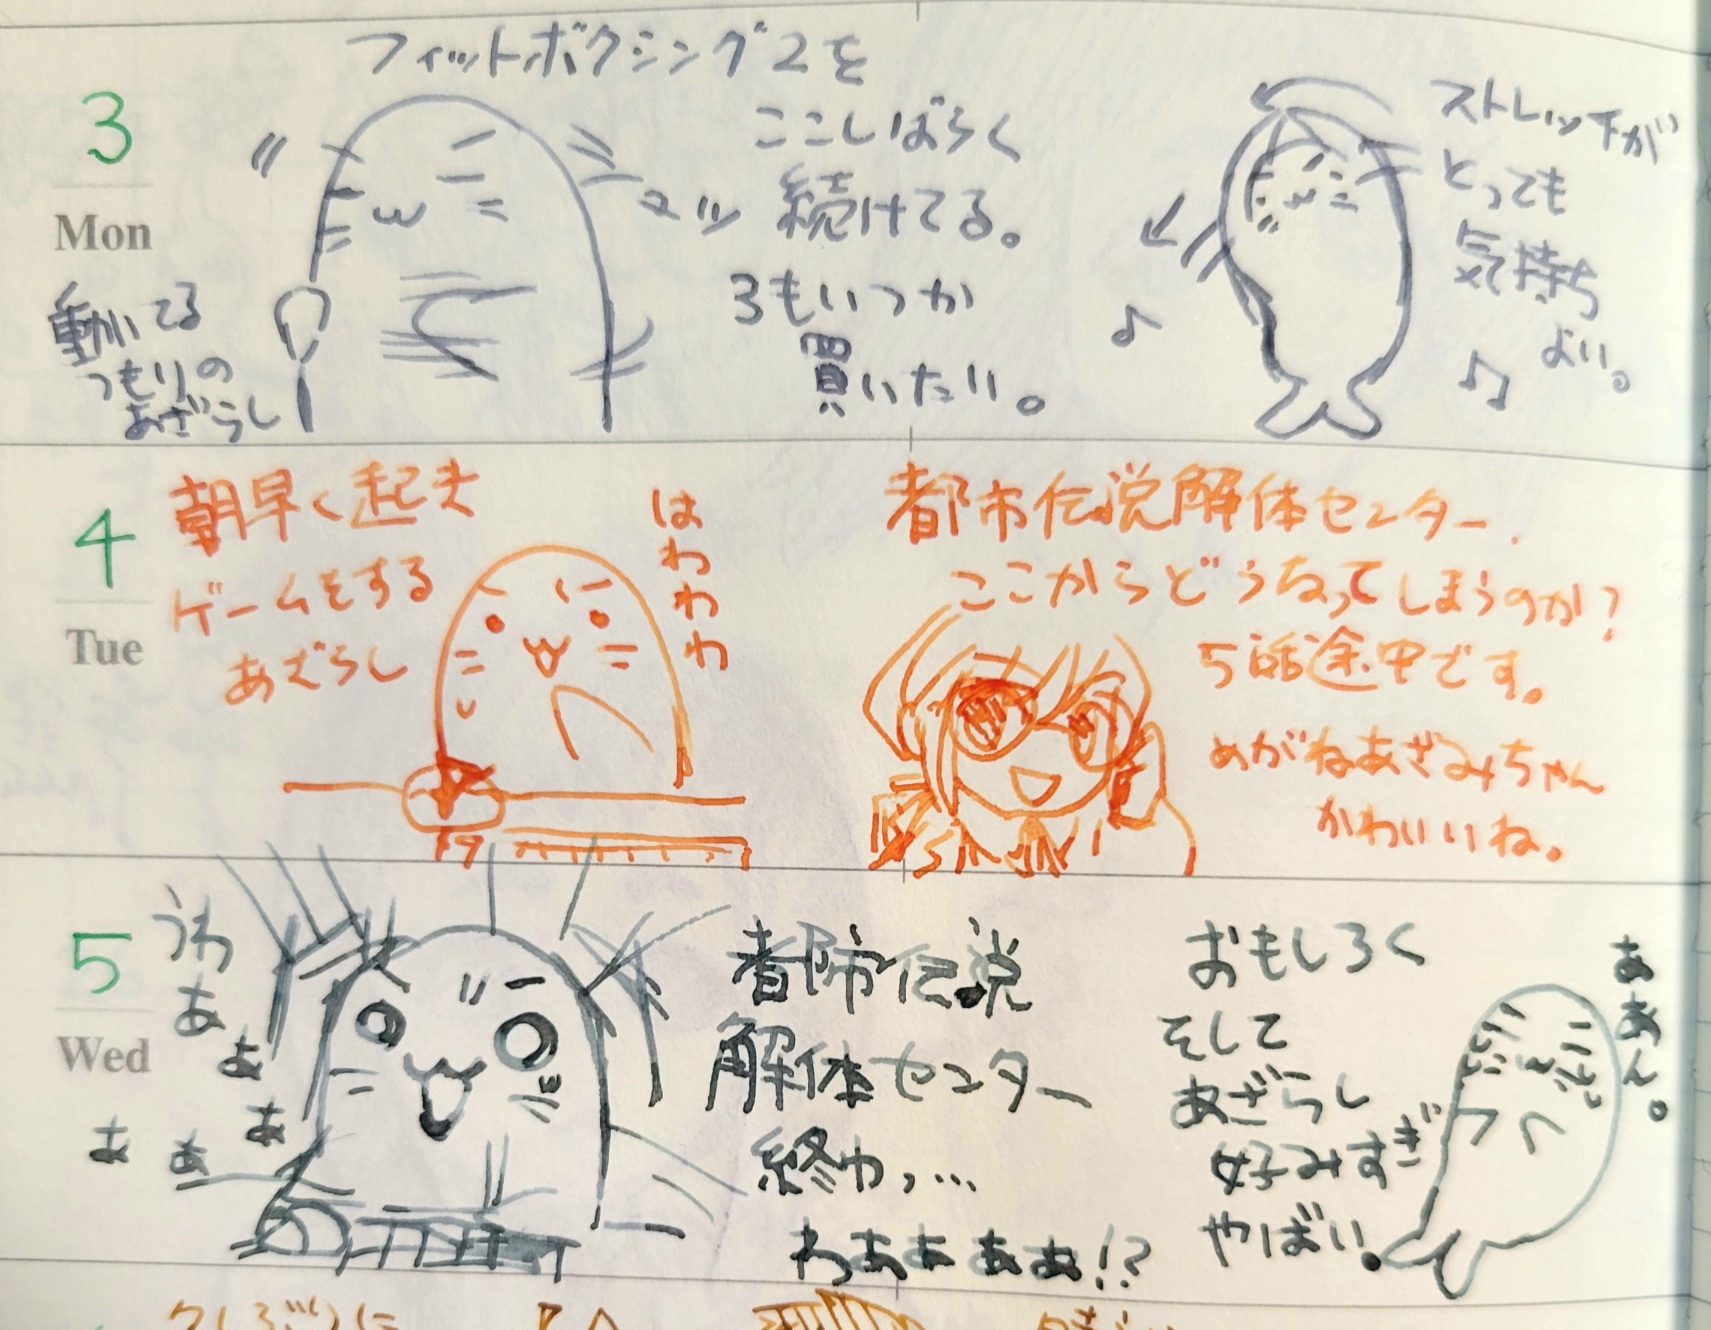 3
Mon
フィットボクシング2を
ここしばらく
続けてる。
3もいつか
買いたい。
動いてる
つもりの
あざらし
ストレッチが
とっても
気持ち
よい。
4
Tue
朝早く起き
ゲームをする
あざらし
はわわわ
都市伝説解体センター、
ここからどうなってしまうのか?
5話途中です。
めがねあざみちゃん
かわいいね。
5
Wed
うわぁぁぁぁぁ
都市伝説
解体センター
終わっ…
わぁぁぁぁぁ!?
おもしろく
そして
あざらし
好みすぎ
やばい。
ああん。